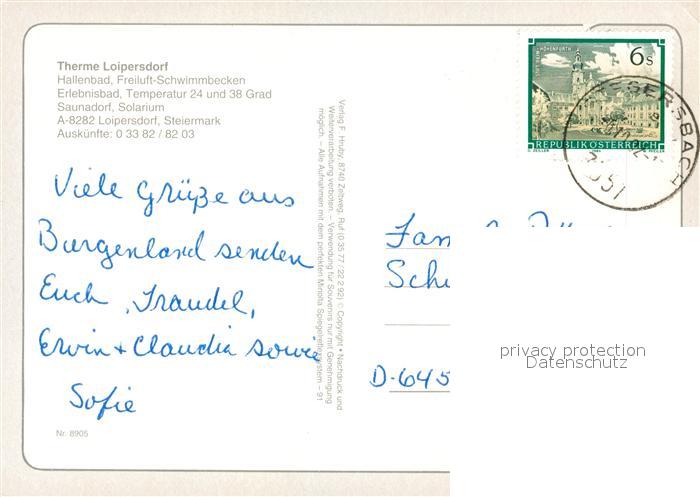 Therme Loipersdorf
Hallenbad, Freiluft-Schwimmbecken
Erlebnisbad, Temperatur 24 und 38 Grad
Saunadorf, Solarium
A-8282 Loipersdorf, Steiermark
Auskünfte: 0 33 82 / 82 03
Viele Grüße aus
Burgenland senden
Euch, Traudel,
Ervin + Claudia sowie
Sofie
Nr. 8905
Verlag F. Hruby, 8740 Zeltweg, Ruf (0 35 77 / 22 2 92) © Copyright • Nachdruck und
Weiterverarbeitung verboten. – Verwendung für Souvenirs nur mit Genehmigung
möglich. – Alle Aufnahmen mit dem perfekten Minolta Spiegelreflexsystem – 91
6 S
REPUBLIK ÖSTERREICH
Fam.
D-645
privacy protection
Datenschutz